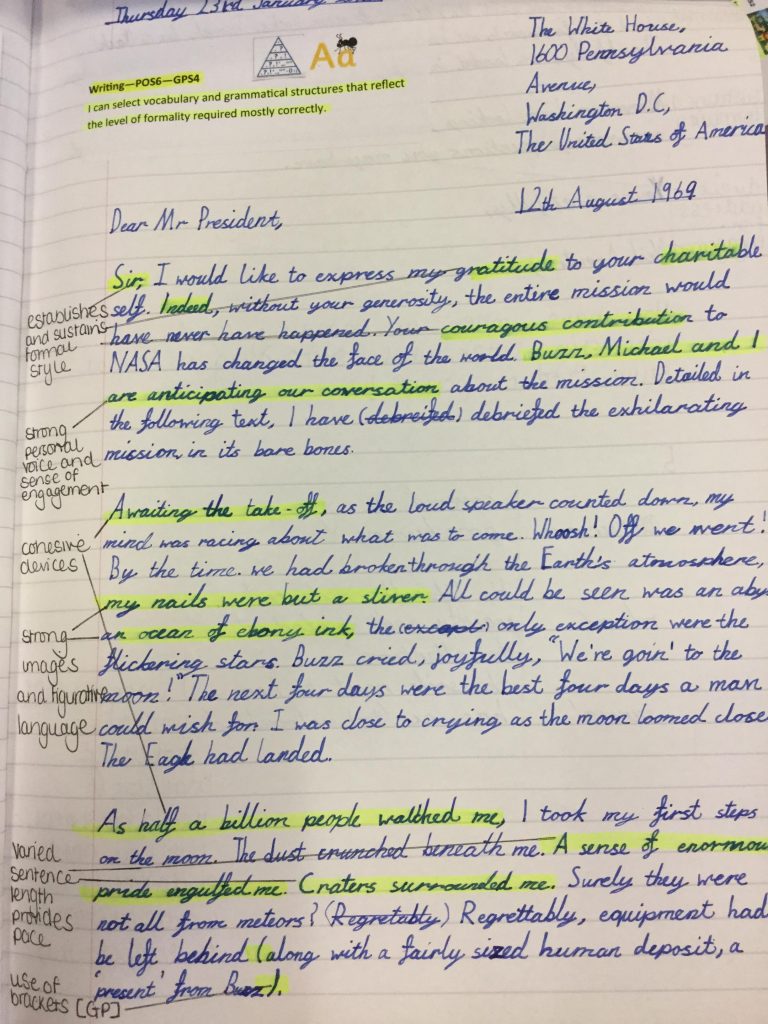 Thursday 23rd January
The White House,
1600 Pennsylvania
Avenue,
Washington D.C,
The United States of America
Aa
Writing—POS6—GPS4
I can select vocabulary and grammatical structures that reflect
the level of formality required mostly correctly.
12th August 1969
Dear Mr President,
Sir, I would like to express my gratitude to your charitable
self. Indeed, without your generosity, the entire mission would
have never have happened. Your couragous contribution to
NASA has changed the face of the world. Buzz, Michael and I
are anticipating our coversation about the mission. Detailed in
the following text, I have (debreifed) debriefed the exhilarating
mission, in its bare bones.
establishes
and sustains
formal
style
strong
personal
voice and
sense of
engagement
Awaiting the take-off, as the loud speaker counted down, my
mind was racing about what was to come. Whoosh! Off we went!
By the time. we had brokenthrough the Earth's atmosphere,
my nails were but a sliver. All could be seen was an aby
an ocean of ebony ink, the (except) only exception were the
flickering stars. Buzz cried, joyfully, "We're goin' to the
moon!" The next four days were the best four days a man
could wish for. I was close to crying as the moon loomed close
The Eagle had landed.
cohesive
devices
strong
images
and figurative
language
As half a billion people watched me, I took my first steps
on the moon. The dust crunched beneath me. A sense of enormou
pride engulfed me. Craters surrounded me. Surely they were
not all from meteors? (Regretabty) Regrettably, equipment had
be left behind (along with a fairly sized human deposit, a
'present' from Buzz).
varied
sentence
length
provides
pace
use of
brackets [GP]